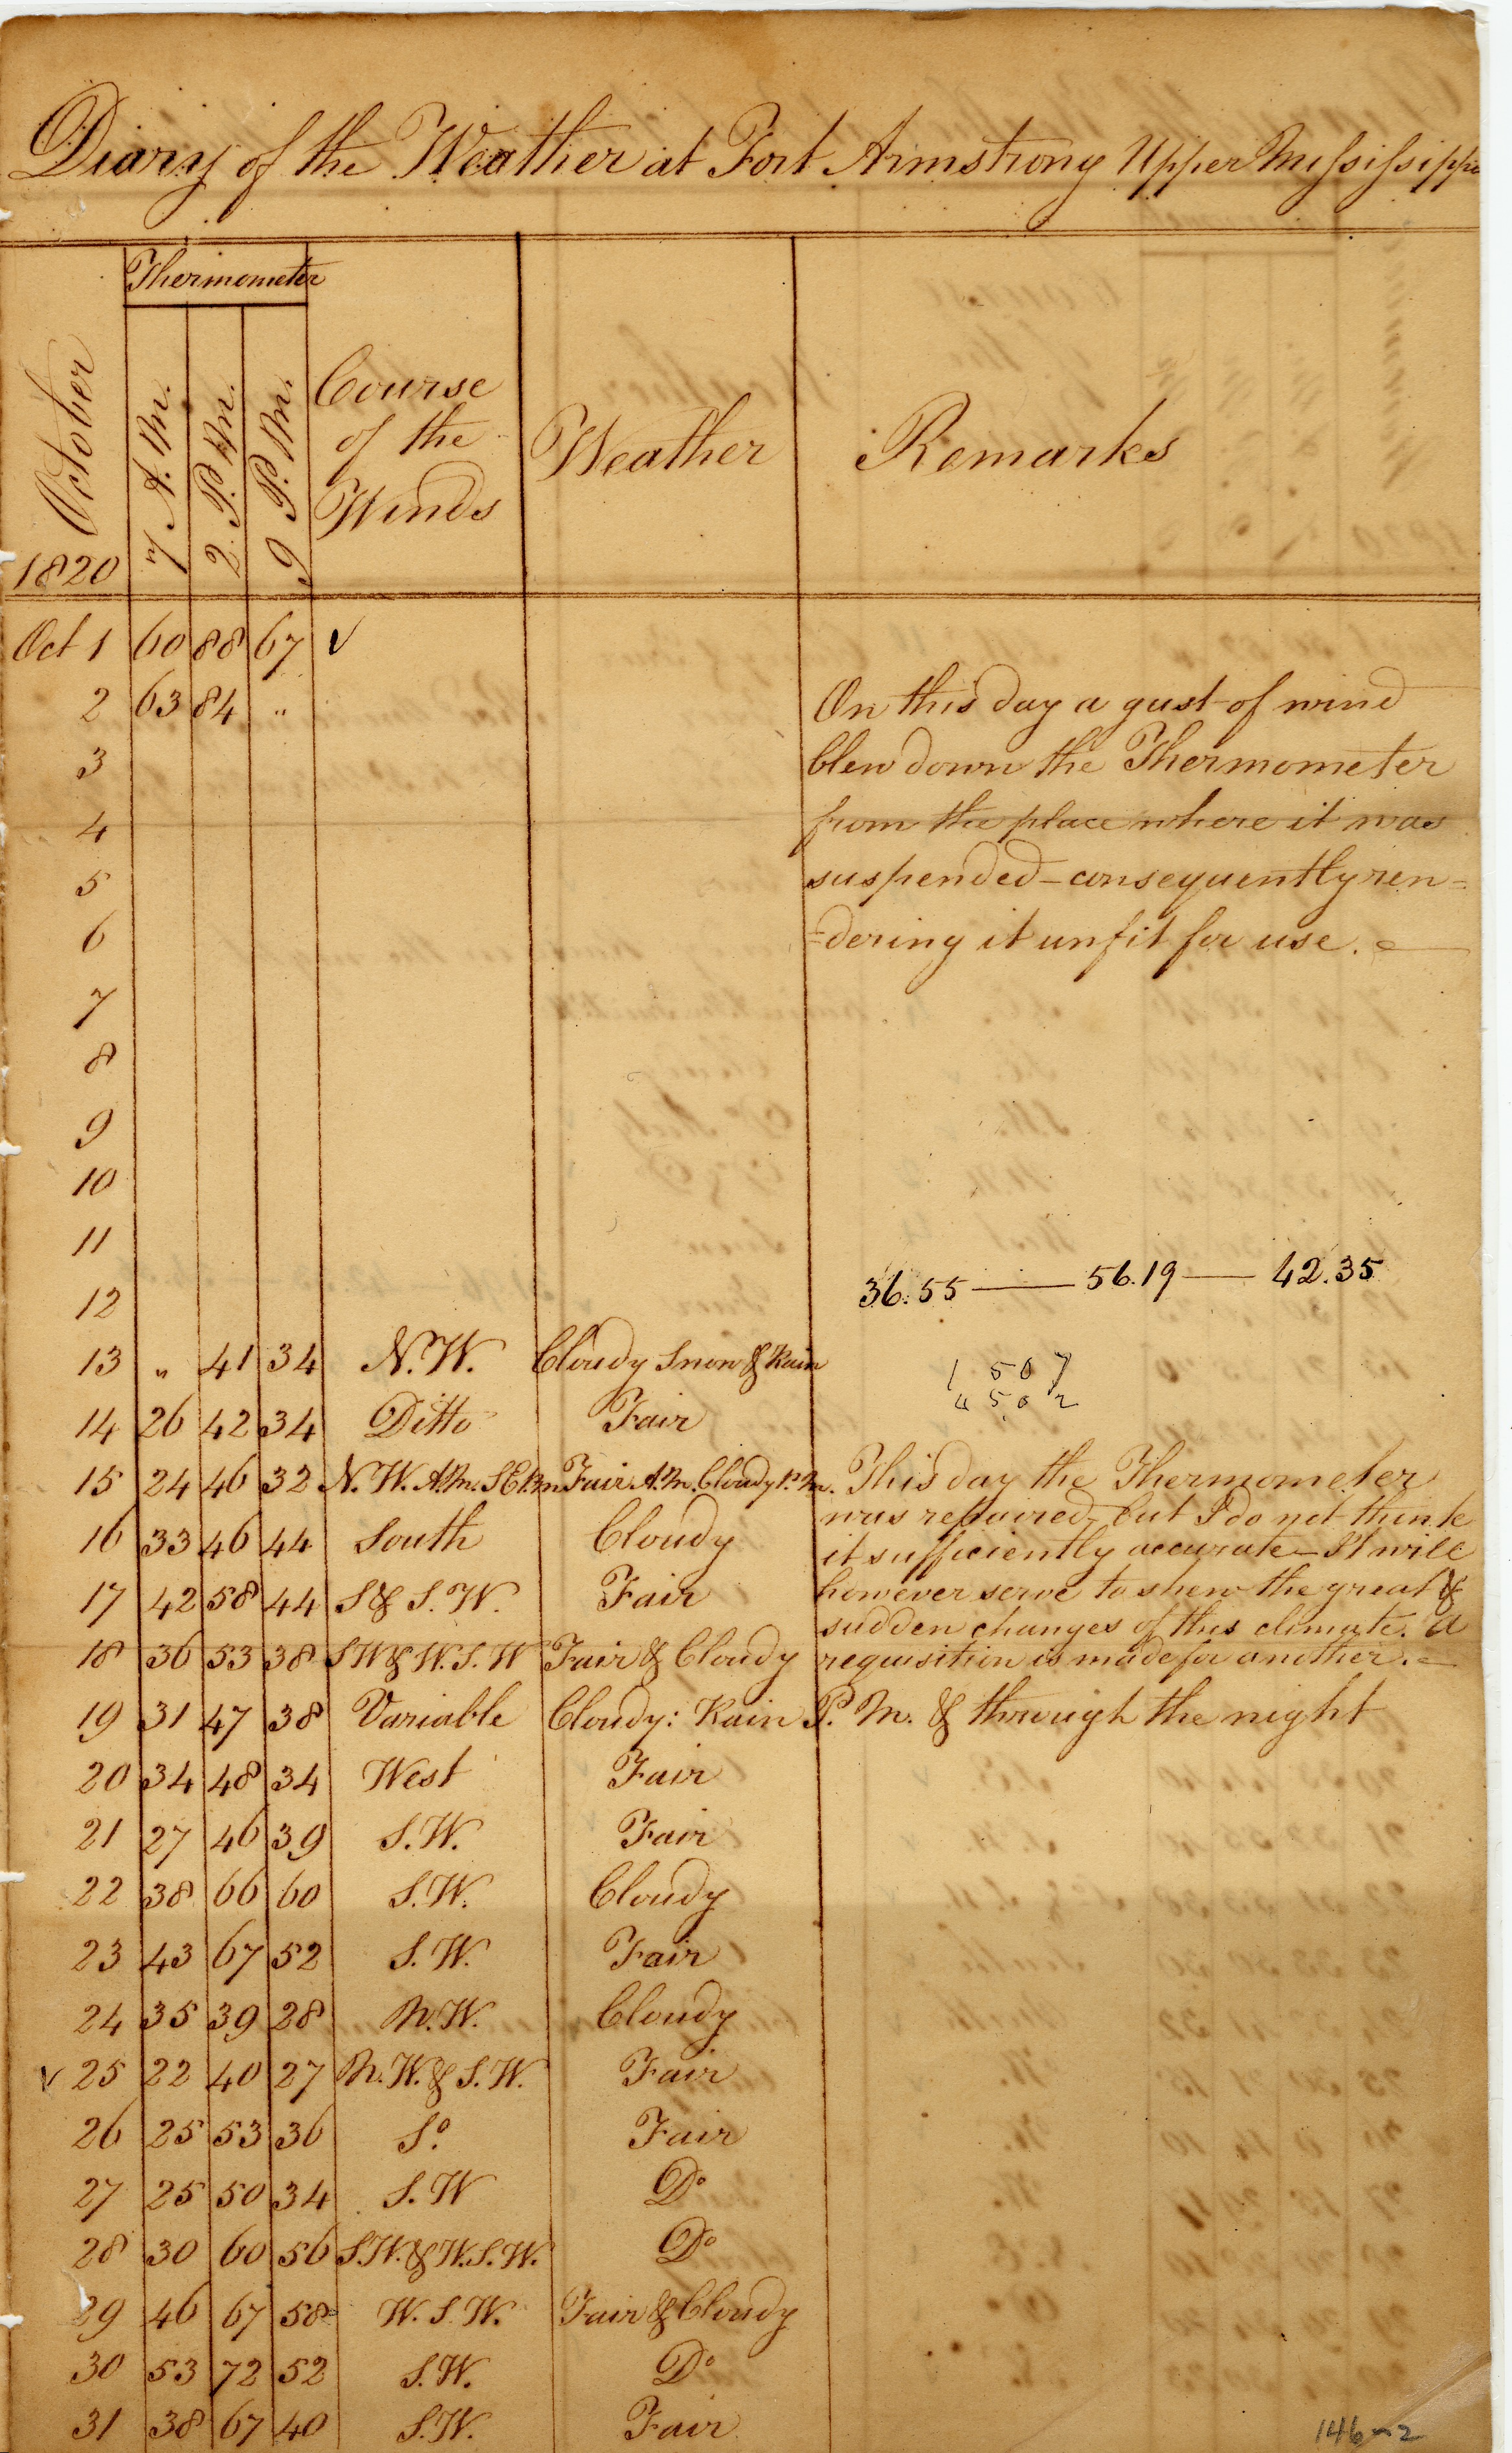 Diary of the Weather at Fort Armstrong Upper Mississippi
Thermometer
October
1820
7 A. M.
2 P. M.
9 P. M.
Course
of the
Winds
Weather
Remarks
Oct 1 60 88 67 ✓
2 63 84 " On this day a gust of wind
3 blew down the Thermometer
4 from the place where it was
5 suspended – consequently ren=
6 =dering it unfit for use.
7
8
9
10
11
36.55 — 56.19 — 42.35
12
13 " 41 34 N.W. Cloudy Snow & Rain
1 507
4 502
14 26 42 34 Ditto Fair
15 24 46 32 N.W. A.M. S E P.M Fair A.M. Cloudy P.M. This day the Thermometer
was repaired, but I do not think
16 33 46 44 South Cloudy it sufficiently accurate – It will
17 42 58 44 S & S.W. Fair however serve to shew the great &
sudden changes of this climate. A
18 36 53 38 SW & W.S.W Fair & Cloudy requisition is made for another. –
19 31 47 38 Variable Cloudy: Rain P. M. & through the night
20 34 48 34 West Fair
21 27 46 39 S.W. Fair
22 38 66 60 S.W. Cloudy
23 43 67 52 S.W. Fair
24 35 39 28 N.W. Cloudy
✓ 25 22 40 27 N.W. & S.W. Fair
26 25 53 36 So. Fair
27 25 50 34 S.W Do
28 30 60 56 S.W. & W.S.W. Do
29 46 67 58 W.S.W. Fair & Cloudy
30 53 72 52 S.W. Do
31 38 67 40 S.W. Fair
146-2